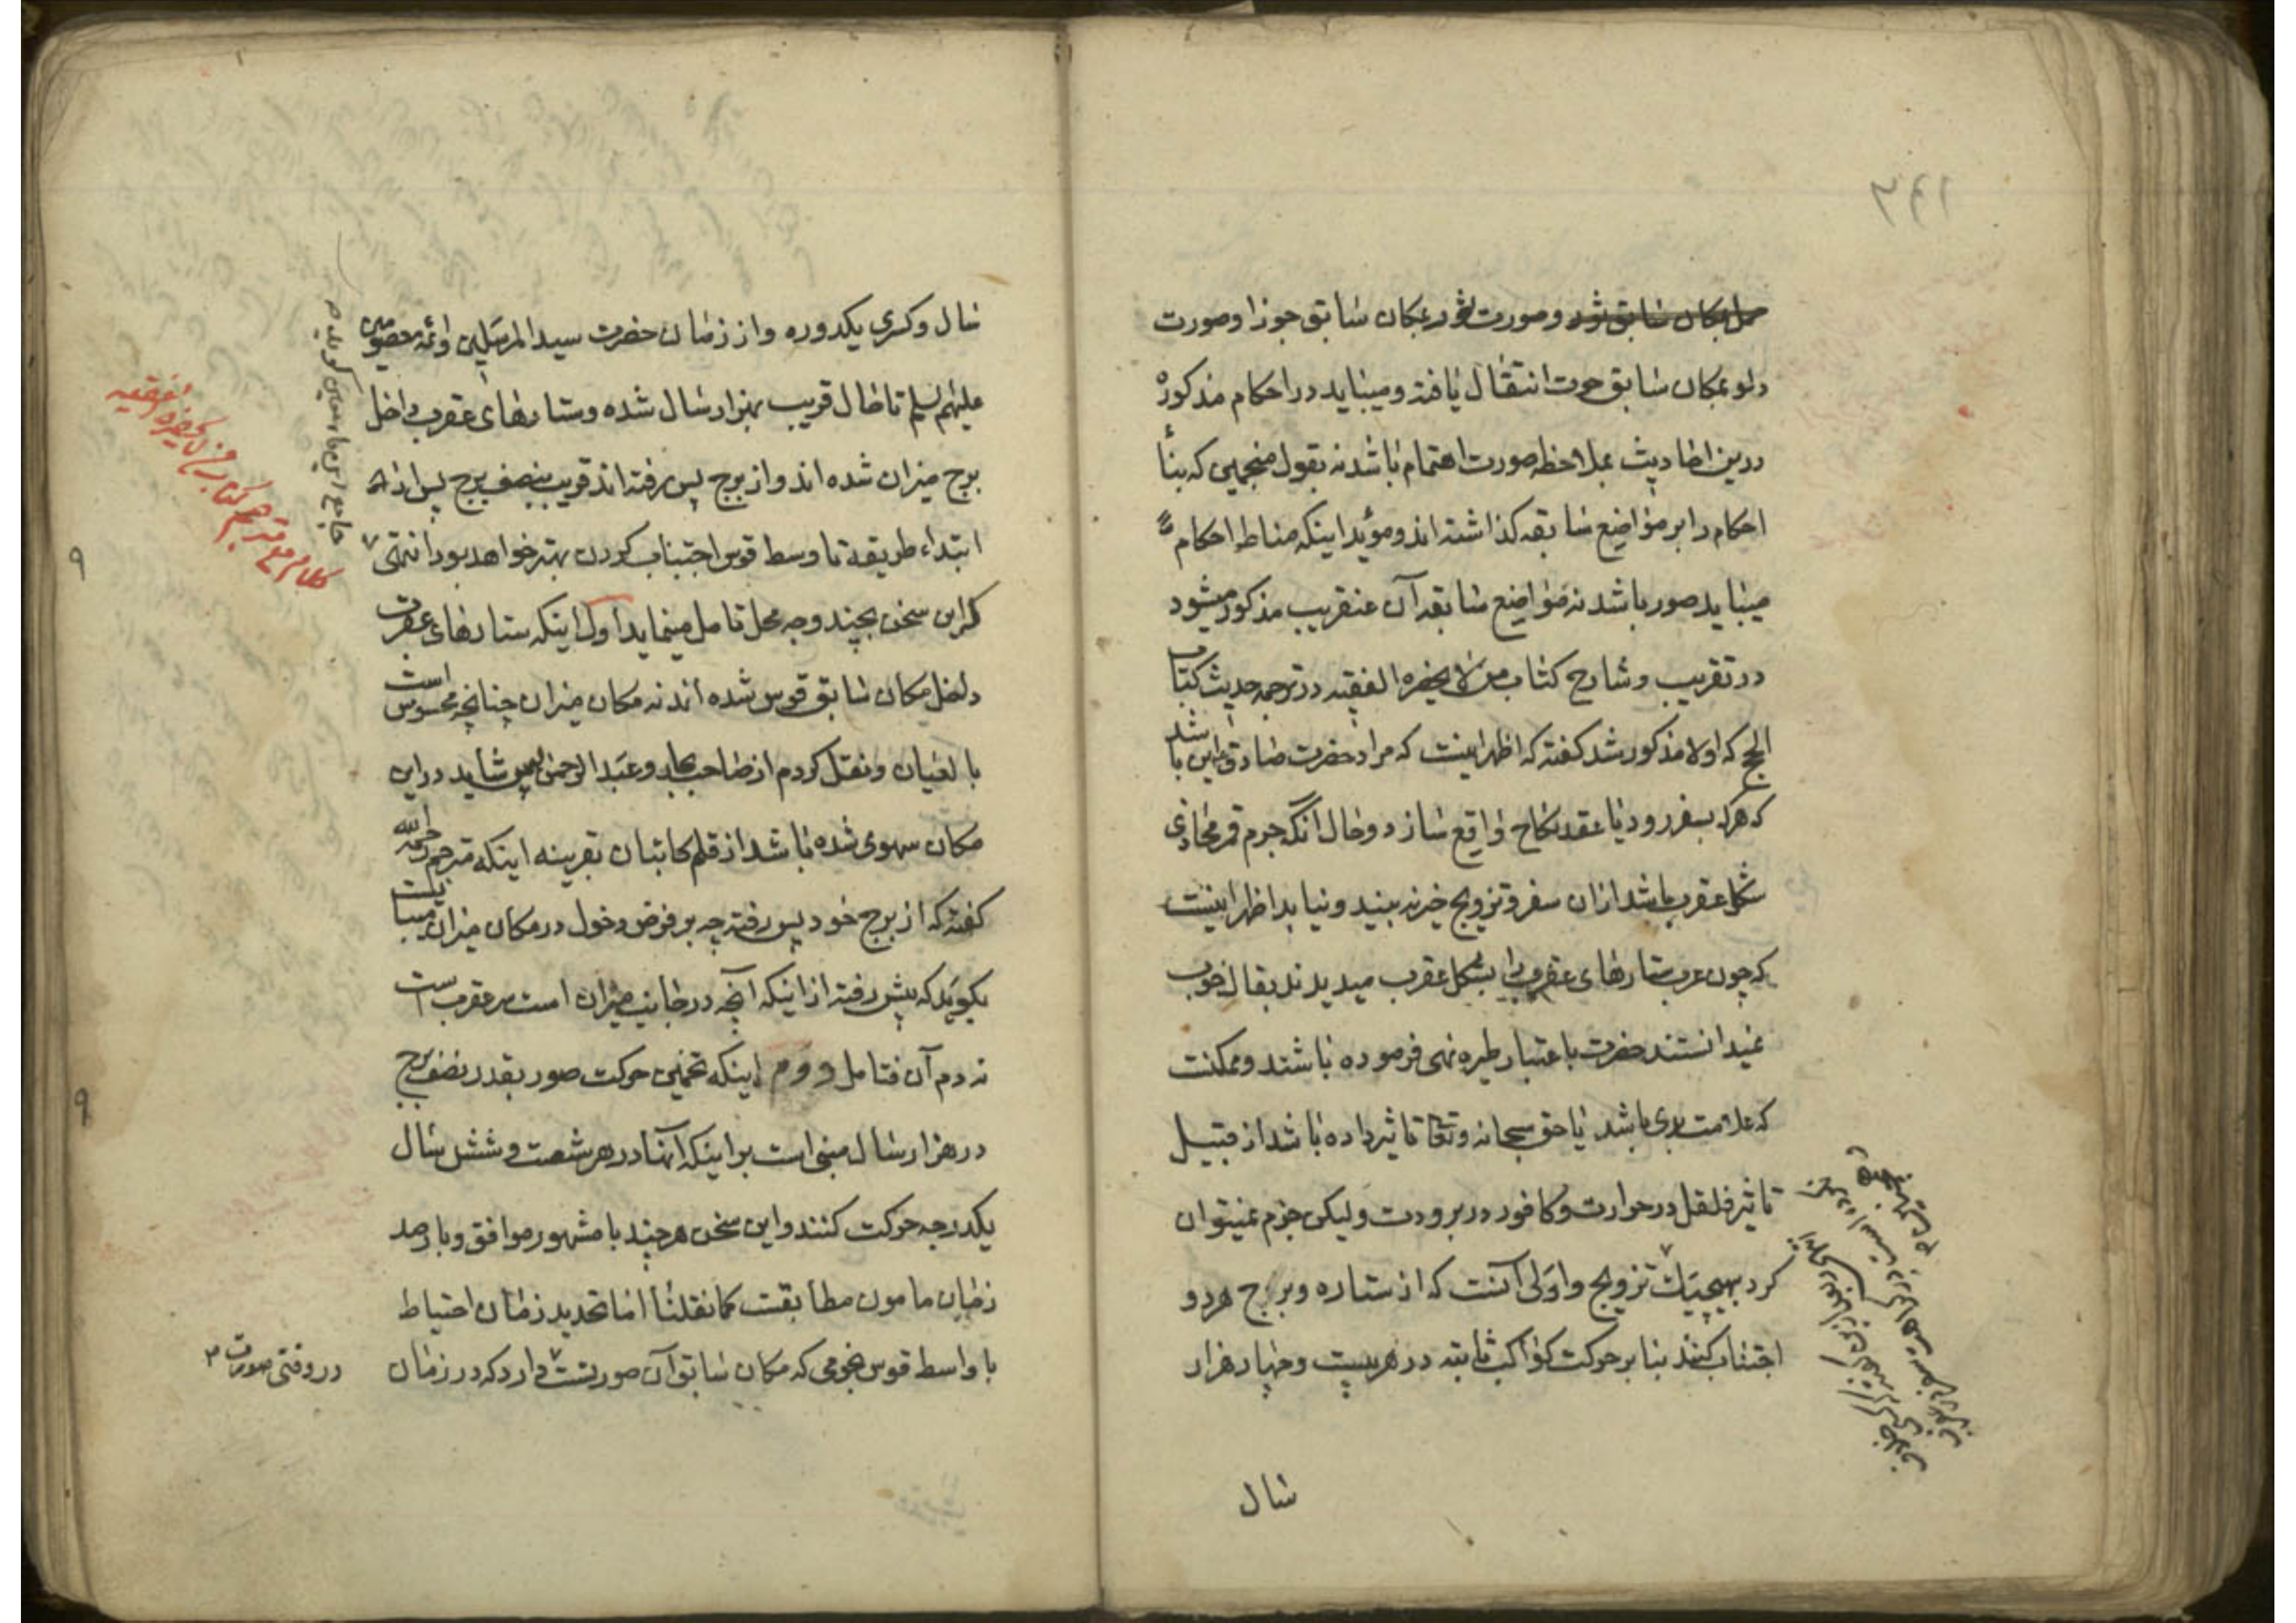 حمل بمکان سابق ثور وصورت ثور بمکان سابق جوزا وصورت
دلو بمکان سابق حوت انتقال یافته ومیباید در احکام مذکوره
درین احادیث بملاحظه صورت اهتمام باشد نه بقول منجمین که بنأ
احکام را بر مواضع سابقه کذاشته اند ومؤید اینکه مناط احکام
میباید صور باشد نه مواضع سابقه آن عنقریب مذکور میشود
در تقریب وشارح کتاب من لا یحضره الفقیه در ترجمه حدیث کتاب
الحج که اولا مذکور شد کفته که اظهر اینست که مراد حضرت صادق این باشد
که هر که بسفر رود یا عقد نکاح واقع سازد وحال آنکه جرم قمر محاذی
شکل عقرب باشد ازان سفر وتزویج خیر نه بیند ونیابد اظهر اینست
که چون عرب ستارهای عقرب را بشکل عقرب میدیدند بفال خوب
نمیدانستند حضرت باعتبار طیره نهی فرموده باشند وممکنست
که علامت بدی باشد یا حق سبحانه وتعالی تاثیر داده باشد از قبیل
تاثیر فلفل در حرارت وکافور در برودت ولیکن جزم نمیتوان
کرد بهیچیک تزویج واولی آنست که از ستاره وبرج هر دو
اجتناب کنند بنا بر حرکت کواکب ثابته در هر بیست وچهار هزار
سال
سال وکسری یکدوره واز زمان حضرت سید المرسلین وائمه معصومین
علیهم السلم تا حال قریب بهزار سال شده وستارهای عقرب داخل
برج میزان شده اند واز برج پس رفته اند قریب بنصف برج پس از
ابتداء طریقه تا وسط قوس اجتناب کردن بهتر خواهد بود انتهی
کلام مترجم کتاب من لا یحضره الفقیه
جامع این اوراق کوید
که این سخن بچند وجه محل تامل مینماید اول اینکه ستارهای عقرب
داخل مکان سابق قوس شده اند نه مکان میزان چنانچه محسوس است
بالعیان ونقل کردم از صاحب بحار وعبد الرحمن پس شاید در این
مکان سهوی شده باشد از قلم کاتبان بقرینه اینکه مترجم رحمه الله
کفته که از برج خود پس رفته چه بر فرض دخول در مکان میزان میبایست
بکوید که پیش رفته از اینکه آنچه در جانب میزان است سر عقرب است
نه دم آن فتامل دوم اینکه تخمین حرکت صور بقدر نصف برج
در هزار سال مبنی است بر اینکه آنها در هر شصت وشش سال
یکدرجه حرکت کنند واین سخن هر چند با مشهور موافق وبا رصد
زمان مامون مطابقست کما نقلنا اما تحدید زمان احتیاط
با واسط قوس نجومی که مکان سابق آن صورتست در وقتی صورت دارد که در زمان